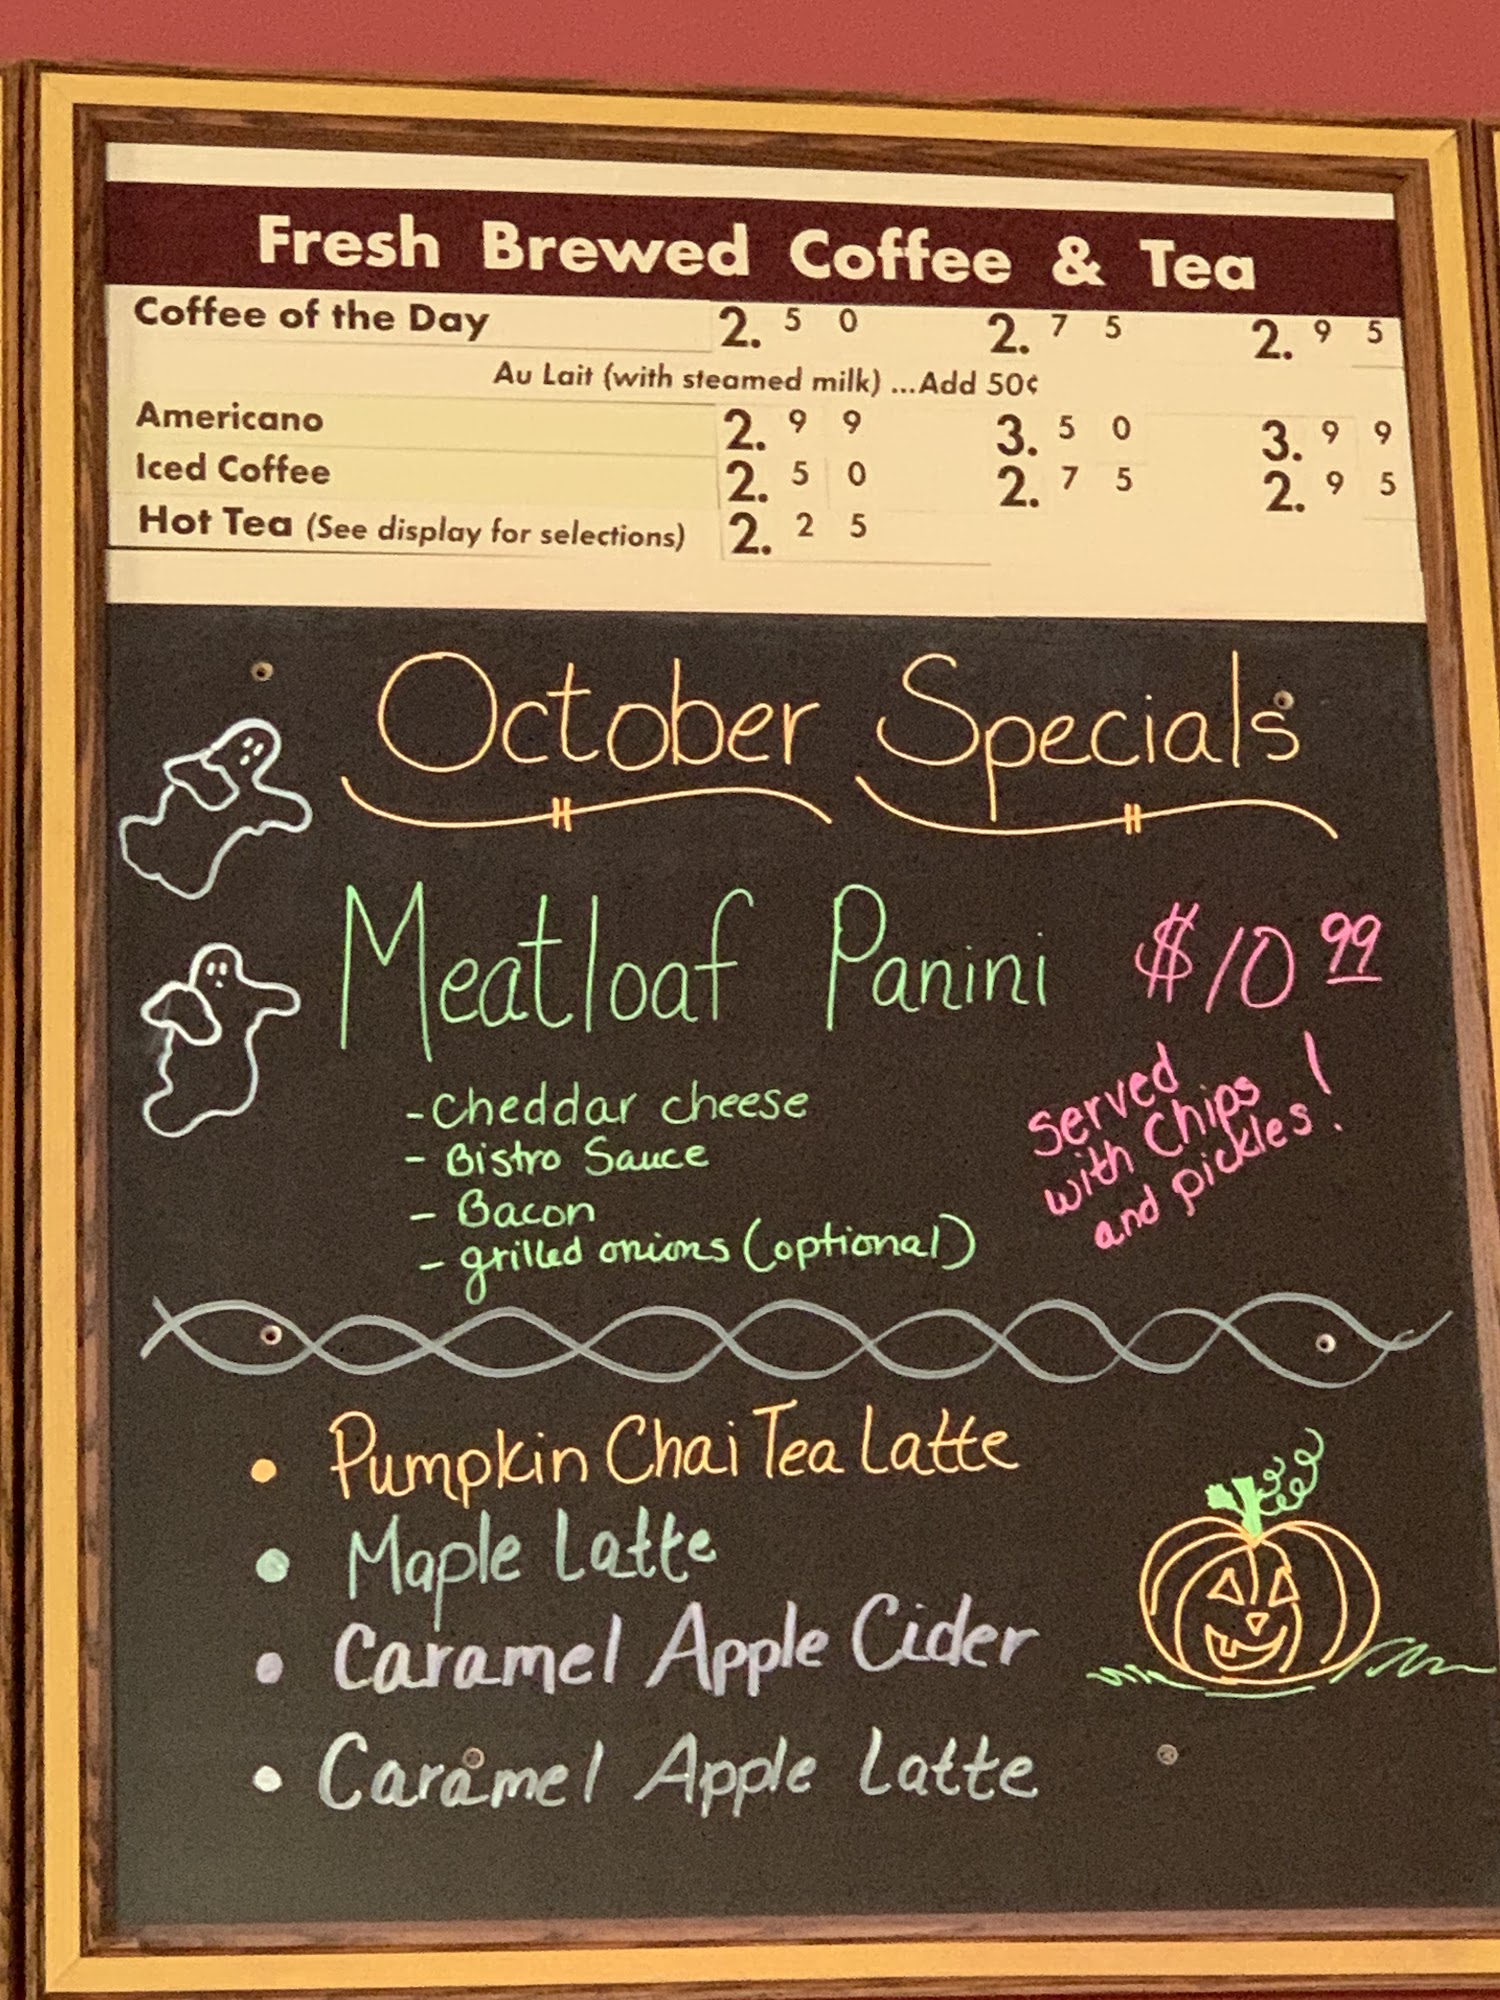 Fresh Brewed Coffee & Tea
Coffee of the Day 2.50 2.75 2.95
Au Lait (with steamed milk) ...Add 50¢
Americano 2.99 3.50 3.99
Iced Coffee 2.50 2.75 2.95
Hot Tea (See display for selections) 2.25
October Specials
Meatloaf Panini $10.99
-Cheddar cheese
- Bistro Sauce
- Bacon
- grilled onions (optional)
Served
with Chips
and pickles!
• Pumpkin Chai Tea Latte
• Maple Latte
• Caramel Apple Cider
• Caramel Apple Latte